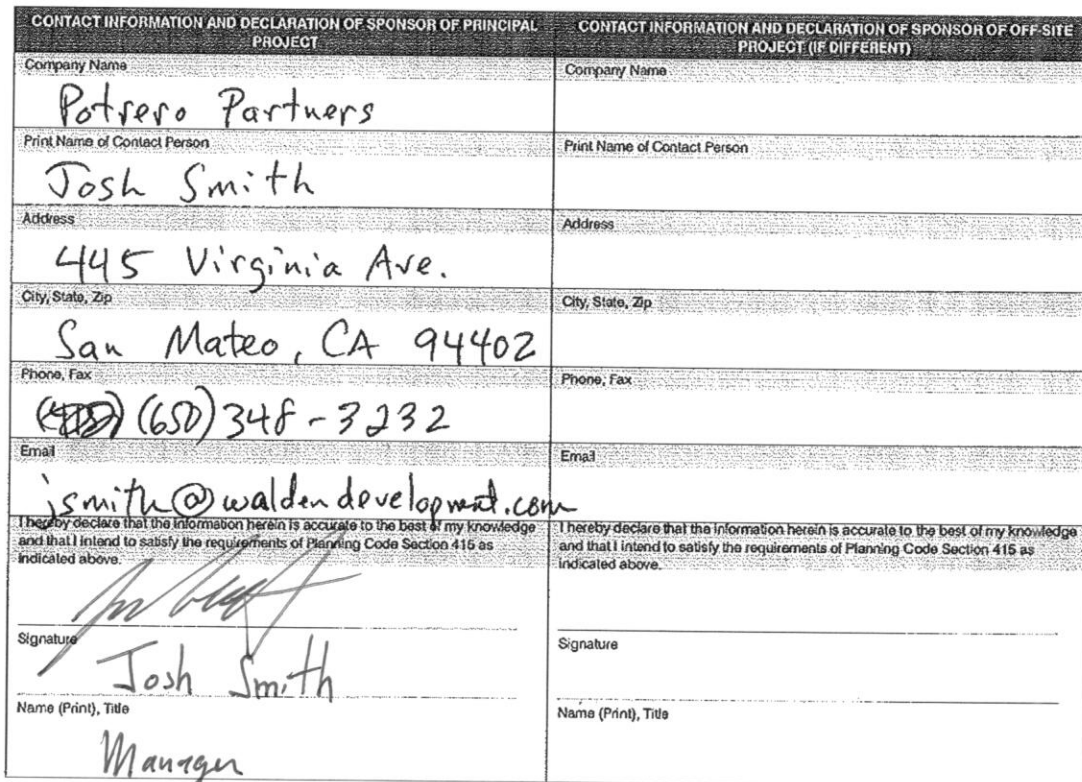 CONTACT INFORMATION AND DECLARATION OF SPONSOR OF PRINCIPAL
PROJECT
Company Name
Potrero Partners
Print Name of Contact Person
Josh Smith
Address
445 Virginia Ave.
City, State, Zip
San Mateo, CA 94402
Phone, Fax
(650) 348-3232
Email
jsmith@waldendevelopment.com
I hereby declare that the information herein is accurate to the best of my knowledge
and that I intend to satisfy the requirements of Planning Code Section 415 as
indicated above.
Signature
Josh Smith
Name (Print), Title
Manager
CONTACT INFORMATION AND DECLARATION OF SPONSOR OF OFF-SITE
PROJECT (IF DIFFERENT)
Company Name
Print Name of Contact Person
Address
City, State, Zip
Phone, Fax
Email
I hereby declare that the information herein is accurate to the best of my knowledge
and that I intend to satisfy the requirements of Planning Code Section 415 as
indicated above.
Signature
Name (Print), Title